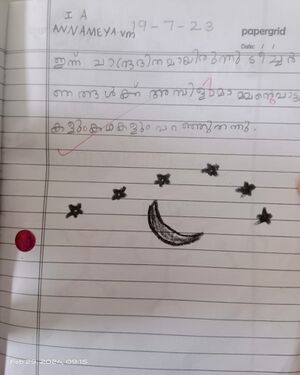 I A
ANNAMEYA vm 19-7-23
papergrid
Date: / /
ഇന്ന് ചാന്ദ്രദിനമായിരുന്നു ടീച്ചർ
ഞങ്ങൾക്ക് അമ്പിളിമാമ
കളും കഥകളും പറഞ്ഞുതന്നു.
Feb 29, 2024, 09:15